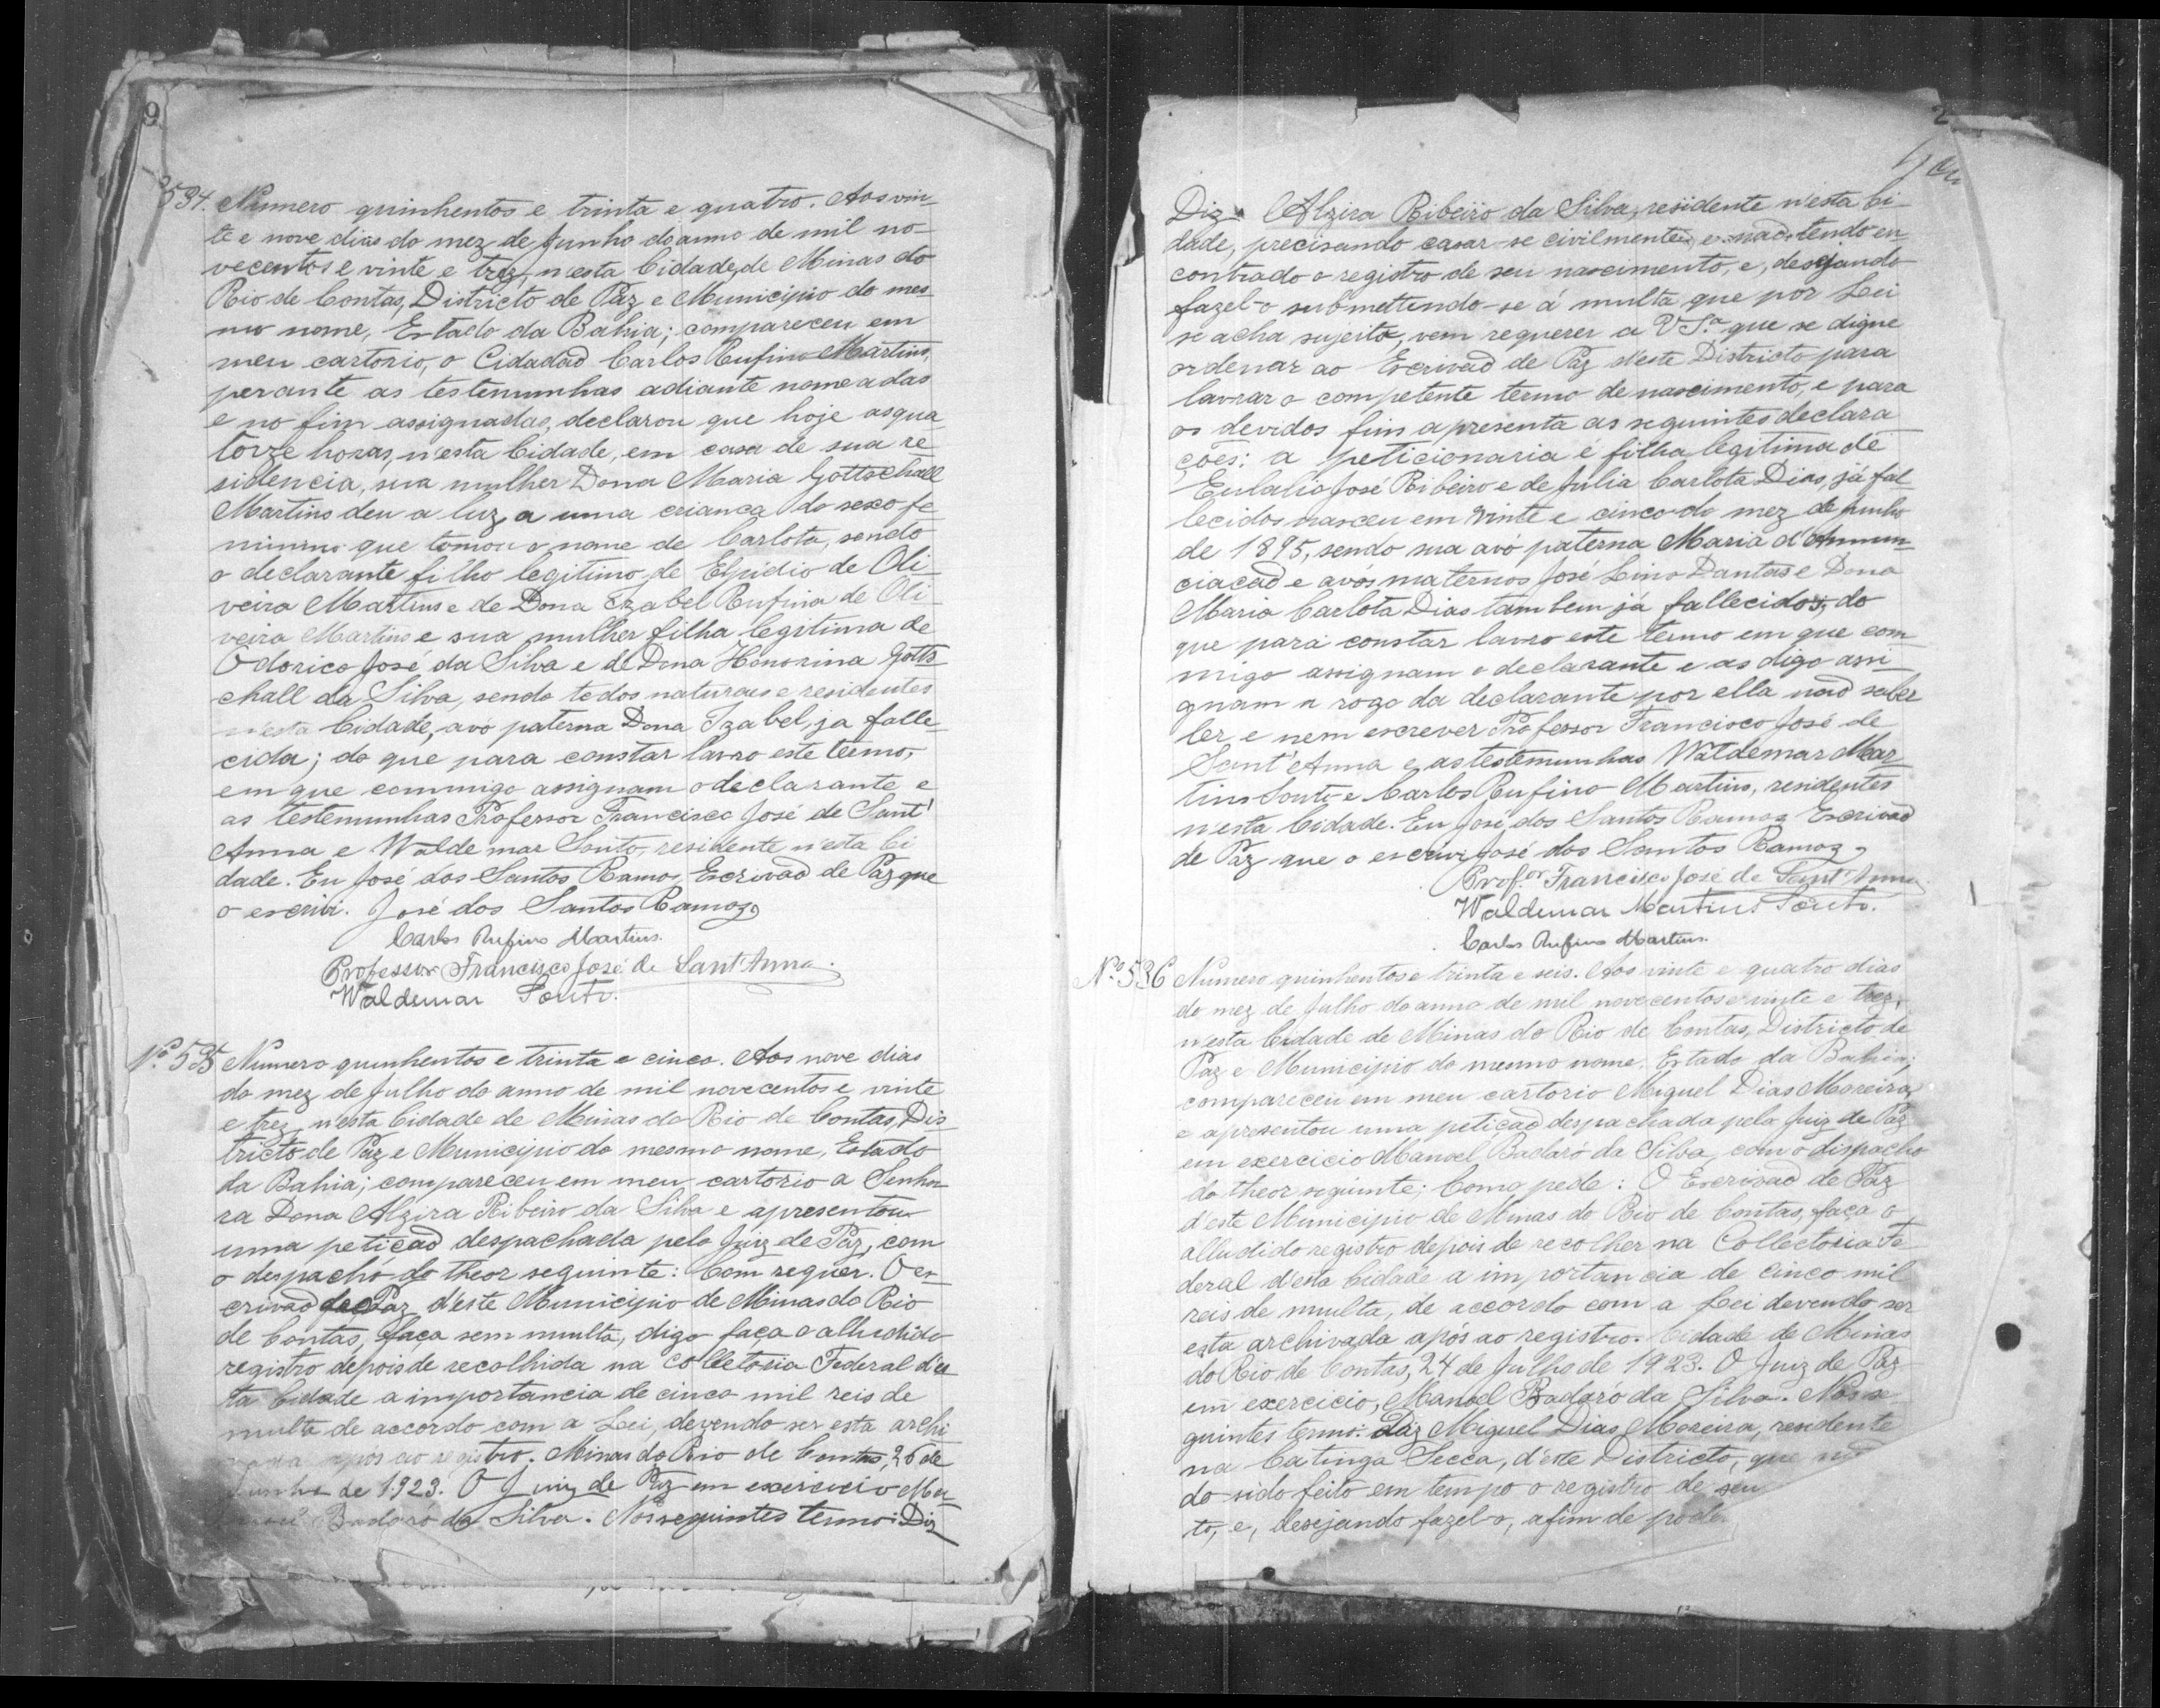 9
534. Numero quinhentos e trinta e quatro. Aos vin-
te e nove dias do mez de Junho do anno de mil no-
vecentos e vinte e trez, n'esta Cidade de Minas do
Rio de Contas, Districto de Paz e Municipio do mes-
mo nome, Estado da Bahia; compareceu em
meu cartorio, o Cidadaõ Carlos Rufino Martins,
perante as testemunhas adiante nomeadas
e no fim assignadas, declarou que hoje as qua-
torze horas, n'esta Cidade, em casa de sua re-
sidencia, sua mulher Dona Maria Gottschall
Martins deu a luz, a uma crianca do sexo fe-
minino que tomou o nome de Carlota, sendo
o declarante filho legitimo de Elpidio de Oli-
veira Martins e de Dona Izabel Rufina de Oli-
veira Martins e sua mulher filha legitima de
Odorico José da Silva e de Dona Honorina Gotts-
chall da Silva, sendo todos naturaes e residentes
n'esta Cidade, avo paterna Dona Izabel, ja falle-
cida; do que para constar lavro este termo,
em que commigo assignam o declarante e
as testemunhas Professor Francisco José de Sant'
Anna e Waldemar Souto, residente n'esta Ci
dade. Eu José dos Santos Ramos, Escrivaõ de Paz que
o escrivi. José dos Santos Ramoz
Carlos Rufino Martins.
Professor Francisco José de Sant'Anna.
Waldemar Souto.
Nº 535 Numero quinhentos e trinta e cinco. Aos nove dias
do mez de Julho do anno de mil novecentos e vinte
e trez, n'esta Cidade de Minas do Rio de Contas, Dis-
tricto de Paz e Municipio do mesmo nome, Estado
da Bahia; compareceu em meu cartorio a Senho-
ra Dona Alzira Ribeiro da Silva e apresentou
uma peticaõ despachada pelo Juiz de Paz, com
o despacho do theor seguinte: Com requer. O es-
crivaõ de Paz d'este Municipio de Minas do Rio
de Contas, faça sem multa, digo faça o alludido
registro depois de recolhida na Colletoria Federal d'es-
ta Cidade a importancia de cinco mil reis de
multa de accordo com a Lei, devendo ser esta archi
após ao registro. Minas do Rio de Contas, 26 de
Junho de 1923. O Juiz de Paz em exercicio Ma-
Badaró da Silva. Nos seguintes termo: Diz
2
Diz Alzira Ribeiro da Silva, residente n'esta Ci-
dade, precisando casar-se civilmente e naõ tendo en-
contrado o registro de seu nascimento, e, desejando
fazel-o submettendo-se á multa que por Lei
se acha sujeita, vem requerer a V S.ª que se digne
ordenar ao Escrivaõ de Paz d'este Districto para
lavrar o competente termo de nascimento, e para
os devidos fins apresenta as seguintes declara
ções: a peticionaria é filha legitima de
Eulalio José Ribeiro e de Julia Carlota Dias, já fal
lecidos nasceu em vinte e cinco do mez de junho
de 1895, sendo sua avó paterna Maria d'Annun-
ciacaõ e avós maternos José Lino Dantas e Dona
Maria Carlota Dias tambem já fallecidos; do
que para constar lavro este termo em que com-
migo assignam o declarante e as digo assi-
gnam a rogo da declarante por ella naõ saber
ler e nem escrever Professor Francisco José de
Sant'Anna e as testemunhas Waldemar Mar
tins Souto e Carlos Rufino Martins, residentes
n'esta Cidade. Eu José dos Santos Ramoz Escrivaõ
de Paz que o escrivi José dos Santos Ramoz
Prof.or Francisco José de Sant'Anna
Waldemar Martins Souto.
Carlos Rufino Martins.
Nº 536 Numero quinhentos e trinta e seis. Aos vinte e quatro dias
do mez de Julho do anno de mil novecentos e vinte e trez,
n'esta Cidade de Minas do Rio de Contas, Districto de
Paz e Municipio do mesmo nome, Estado da Bahia;
compareceu em meu cartorio Miguel Dias Moreira,
e apresentou uma peticaõ despachada pelo Juiz de Paz
em exercicio Manoel Badaró da Silva, com o dispacho
do theor seguinte; Como pede: O Escrivaõ de Paz
d'este Municipio de Minas do Rio de Contas, faça o
alludido registro depois de recolher na Collectoria Fe
deral d'esta Cidade a importancia de cinco mil
reis de multa, de accordo com a Lei devendo ser
esta archivada após ao registro. Cidade de Minas
do Rio de Contas, 24 de Julho de 1923. O Juiz de Paz
em exercicio, Manoel Badaró da Silva. Nos se-
guintes termo: Diz Miguel Dias Moreira, residente
na Catinga Secca, d'este Districto, que
do sido feito em tempo o registro de seu
to, e, desejando fazel-o, afim de